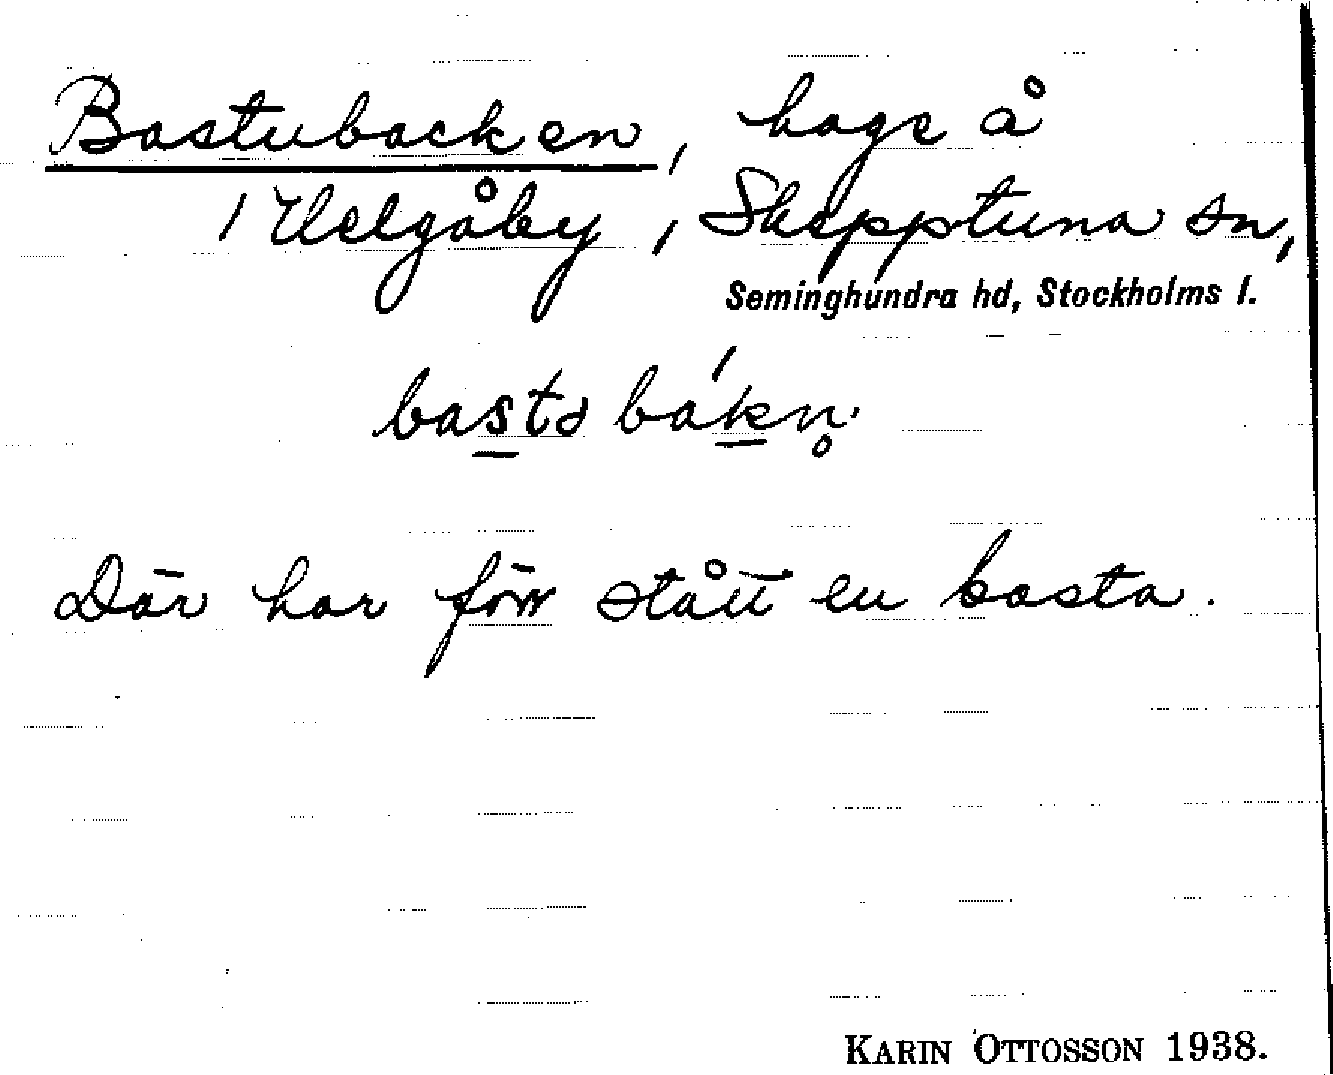 Bastubacken, hage å
/ Helgåby, Skepptuna sn,
Seminghundra hd, Stockholms l.
bastəbákn̥
Där har förr stått en basta.
KARIN OTTOSSON 1938.